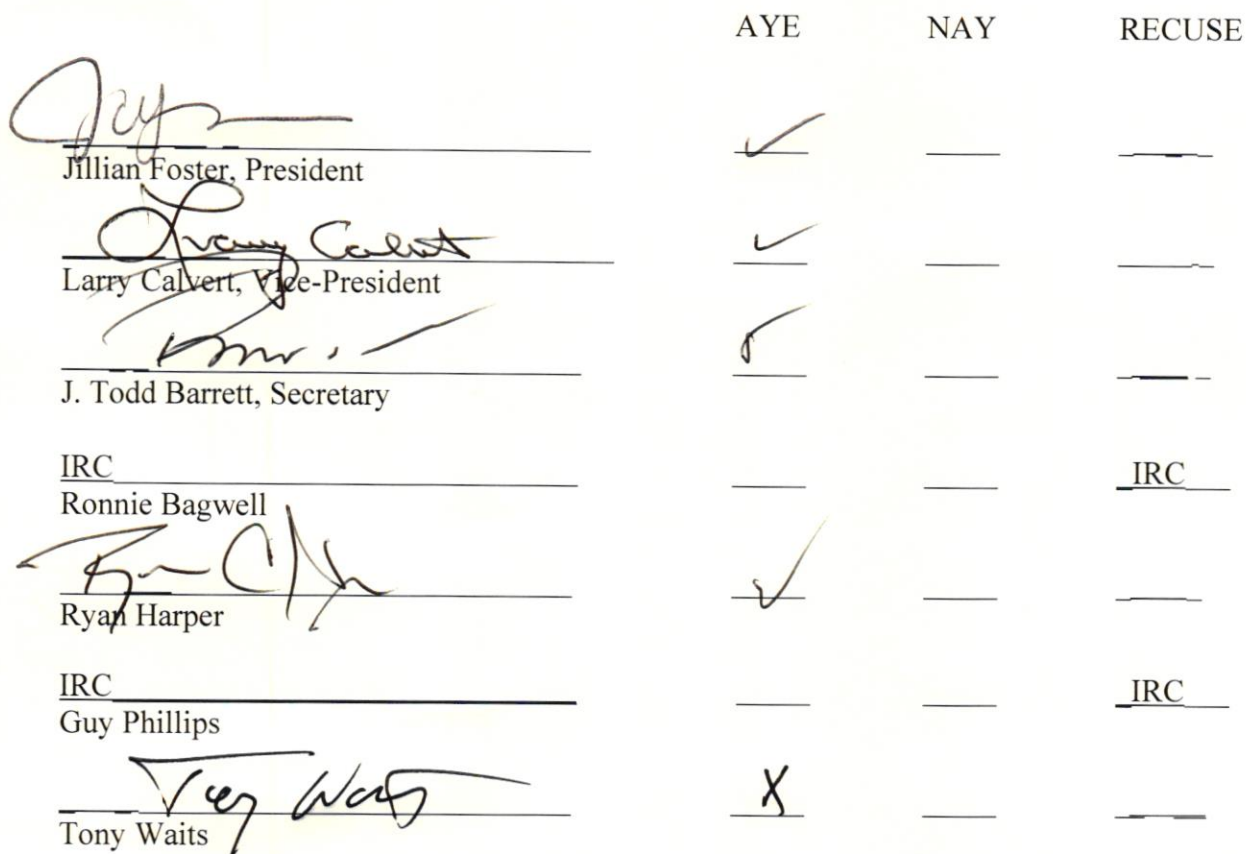 AYE NAY RECUSE
Jillian Foster, President
Larry Calvert
Larry Calvert, Vice-President
J. Todd Barrett, Secretary
IRC IRC
Ronnie Bagwell
Ryan Harper
IRC IRC
Guy Phillips
Tony Waits
Tony Waits